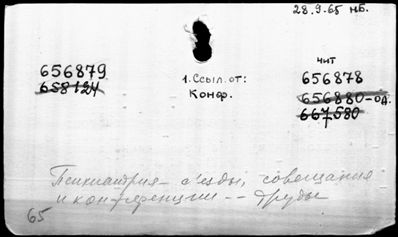 28.9.65 НБ.
чит
656879
658124
1. Ссыл. от:
Конф.
656878
656880-од.
667580
Психиатрия - съезды, совещания
и конференции -- Труды
65